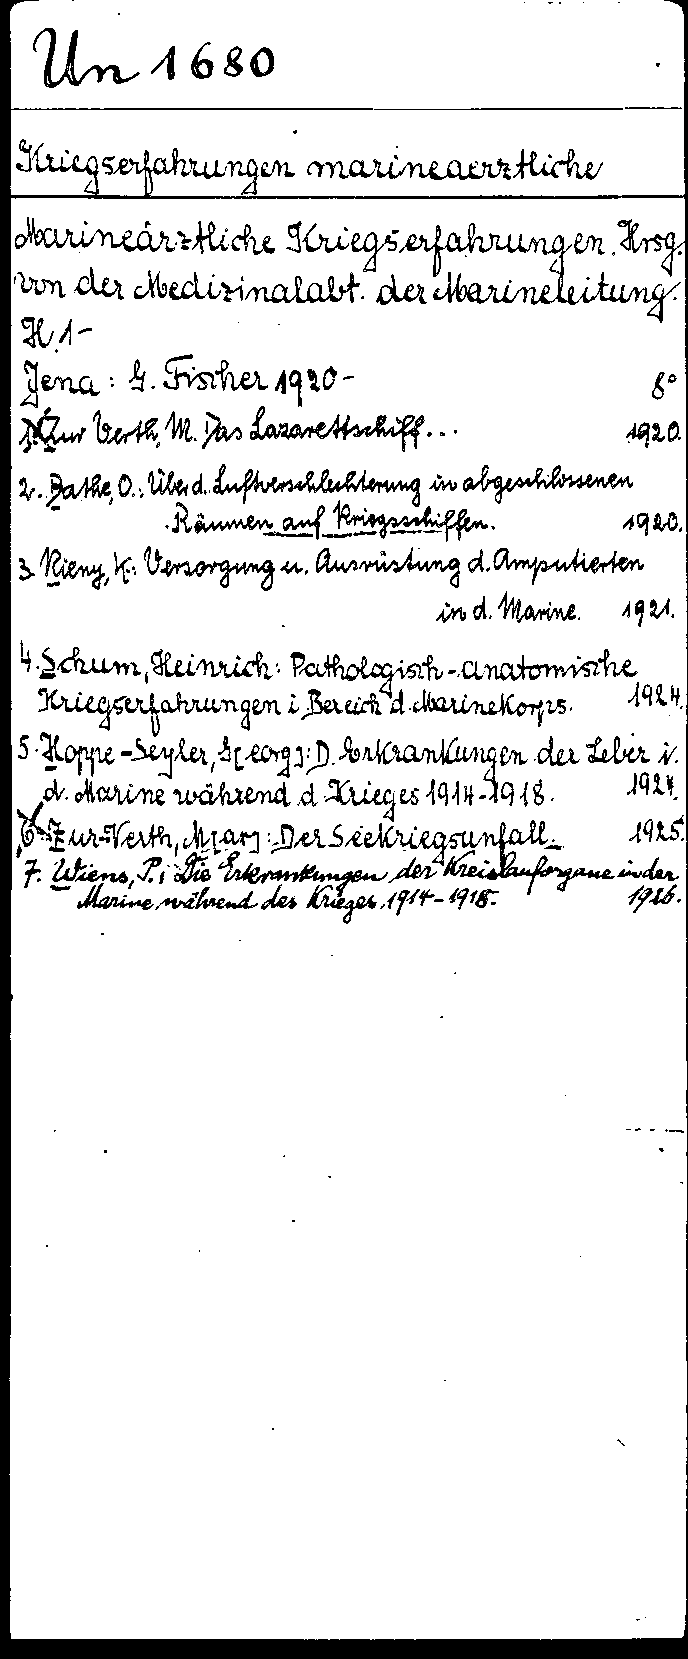 Un 1680
Kriegserfahrungen marineaerztliche
Marineärztliche Kriegserfahrungen. Hrsg.
von der Medizinalabt. der Marineleitung.
H. 1-
Jena: G. Fischer 1920- 8°
1. Zur Verth, M. Das Lazarettschiff... 1920.
2. Bathe, O.: Über d. Luftverschlechterung in abgeschlossenen
Räumen auf Kriegsschiffen. 1920.
3. Rieny, K.: Versorgung u. Ausrüstung d. Amputierten
in d. Marine. 1921.
4. Schum, Heinrich: Pathologisch-anatomische
Kriegserfahrungen i. Bereich d. Marinekorps. 1924.
5. Hoppe-Seyler, G[eorg]: D. Erkrankungen der Leber i.
d. Marine während d. Krieges 1914-1918. 1924.
6. Zur Verth, M[ax]: Der Seekriegsunfall. 1925.
7. Wiens, P.: Die Erkrankungen der Kreislauforgane in der
Marine während des Krieges 1914-1918. 1926.